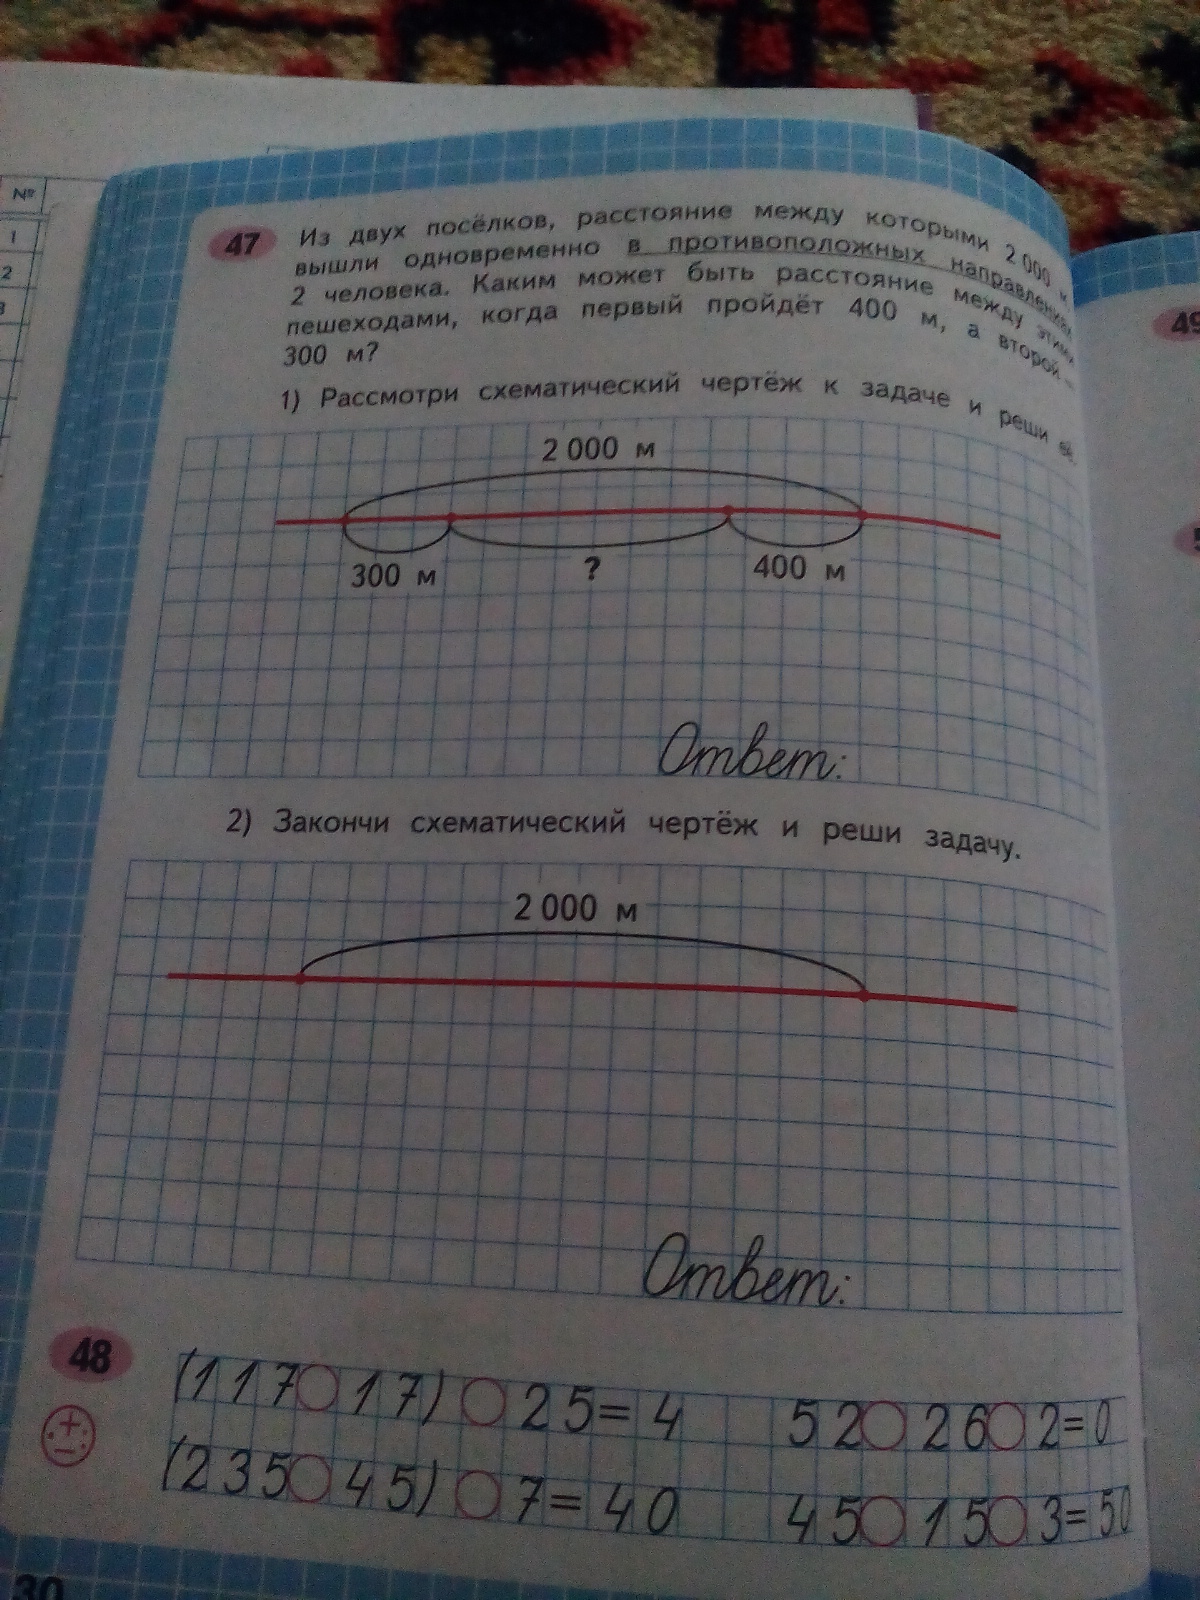 №
1
2
3
47
Из двух посёлков, расстояние между которыми 2 000 м,
вышли одновременно в противоположных направлениях
2 человека. Каким может быть расстояние между этими
пешеходами, когда первый пройдёт 400 м, а второй —
300 м?
1) Рассмотри схематический чертёж к задаче и реши её.
2 000 м
300 м ? 400 м
Ответ:
2) Закончи схематический чертёж и реши задачу.
2 000 м
Ответ:
48
(117○17)○25=4 52○26○2=0
(235○45)○7=40 45○15○3=50
30
49
5